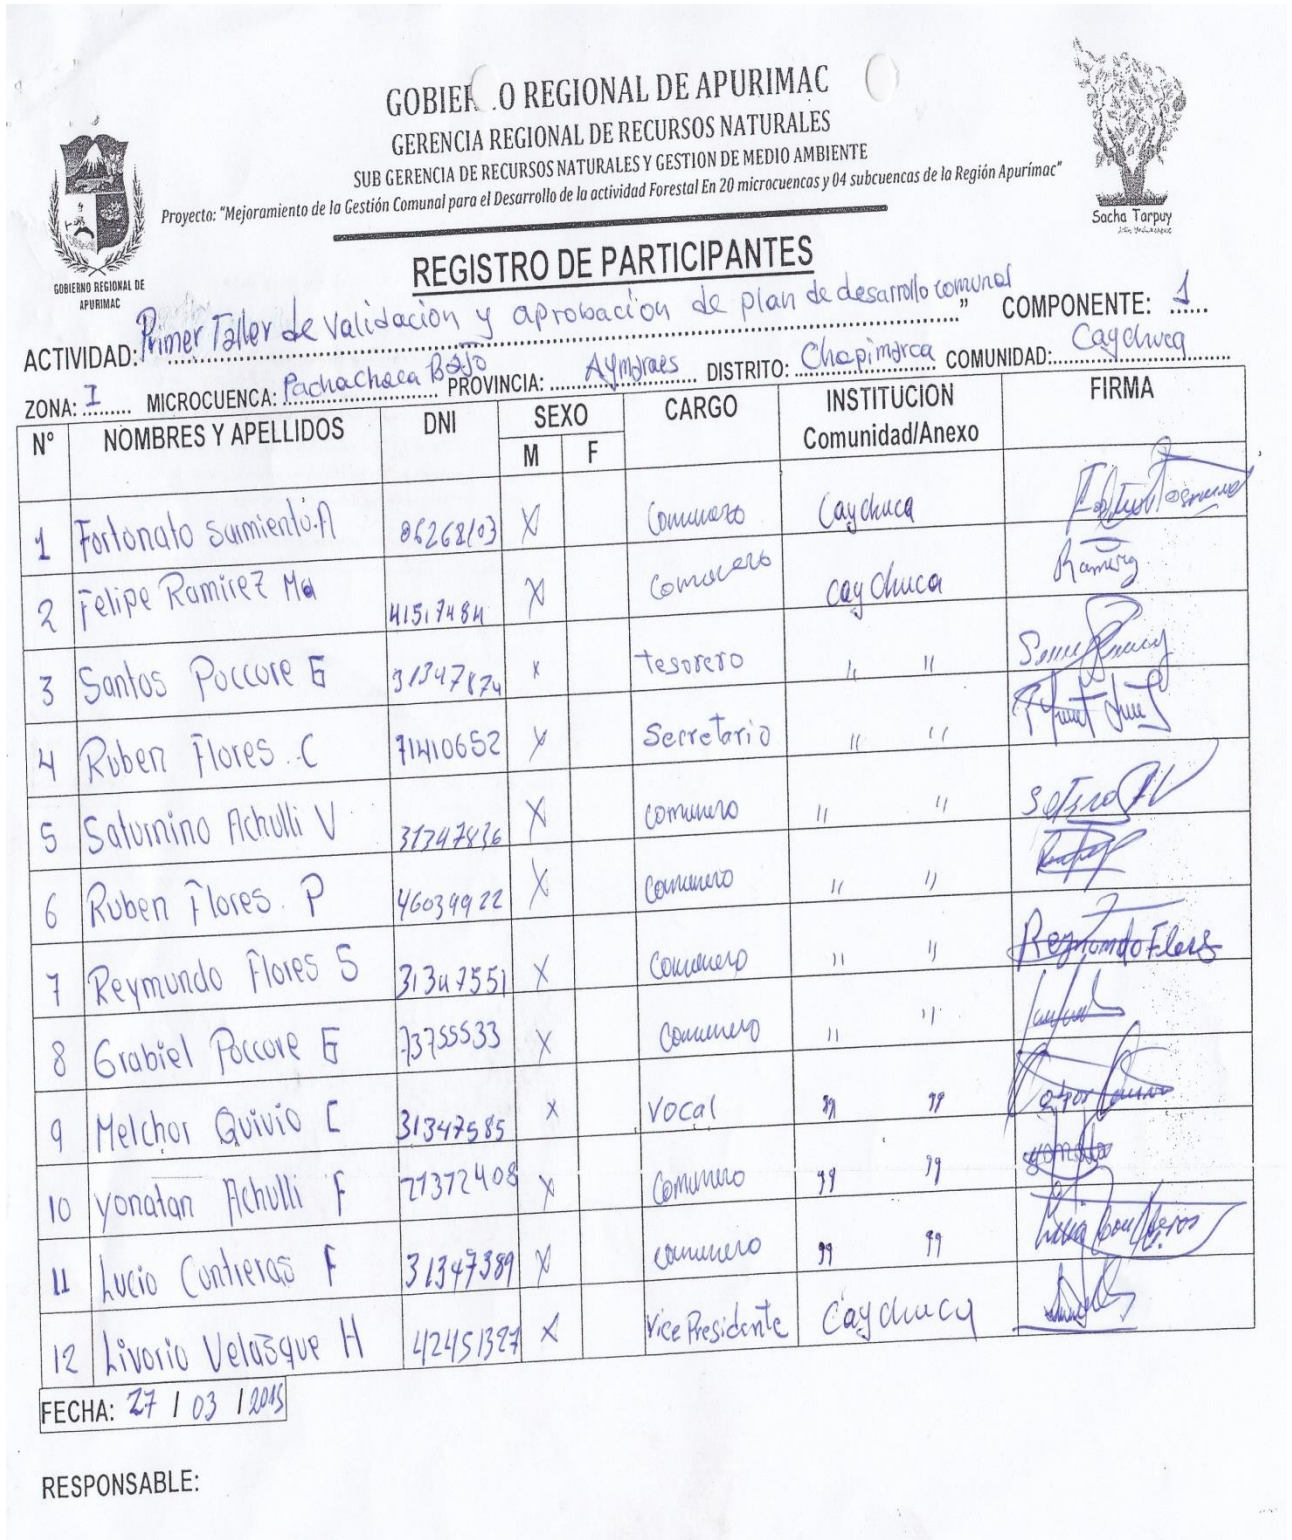 GOBIER O REGIONAL DE APURIMAC
GERENCIA REGIONAL DE RECURSOS NATURALES
SUB GERENCIA DE RECURSOS NATURALES Y GESTION DE MEDIO AMBIENTE
Proyecto: "Mejoramiento de la Gestión Comunal para el Desarrollo de la actividad Forestal En 20 microcuencas y 04 subcuencas de la Región Apurímac"
GOBIERNO REGIONAL DE
APURIMAC
Sacha Tarpuy
REGISTRO DE PARTICIPANTES
ACTIVIDAD: Primer Taller de validación y aprobación de plan de desarrollo comunal" COMPONENTE: 1
ZONA: I MICROCUENCA: Pachachaca Bajo PROVINCIA: Aymaraes DISTRITO: Chapimarca COMUNIDAD: Caychuca
N° NOMBRES Y APELLIDOS DNI SEXO CARGO INSTITUCION FIRMA
M F Comunidad/Anexo
1 Fortonato Sarmiento.A X Comunero Caychuca
2 Felipe Ramirez Ma X Comunero Caychuca Ramirez
3 Santos Poccore E 31347874 x tesorero " "
4 Ruben Flores.C 71410652 x Secretario " "
5 Saturnino Achulli V 31347836 X comunero " "
6 Ruben Flores. P 46039922 X comunero " "
7 Reymundo Flores S 31347551 X Comunero " " Reymundo Flores
8 Grabiel Poccore E 73755533 X Comunero " "
9 Melchor Quivio C 31347585 x vocal " "
10 Yonatan Achulli F 71372408 x Comunero " "
11 Lucio Contreras F 31347389 X comunero " "
12 Livorio Velasque H 42451327 X Vice Presidente Caychuca
FECHA: 27 / 03 / 2015
RESPONSABLE: